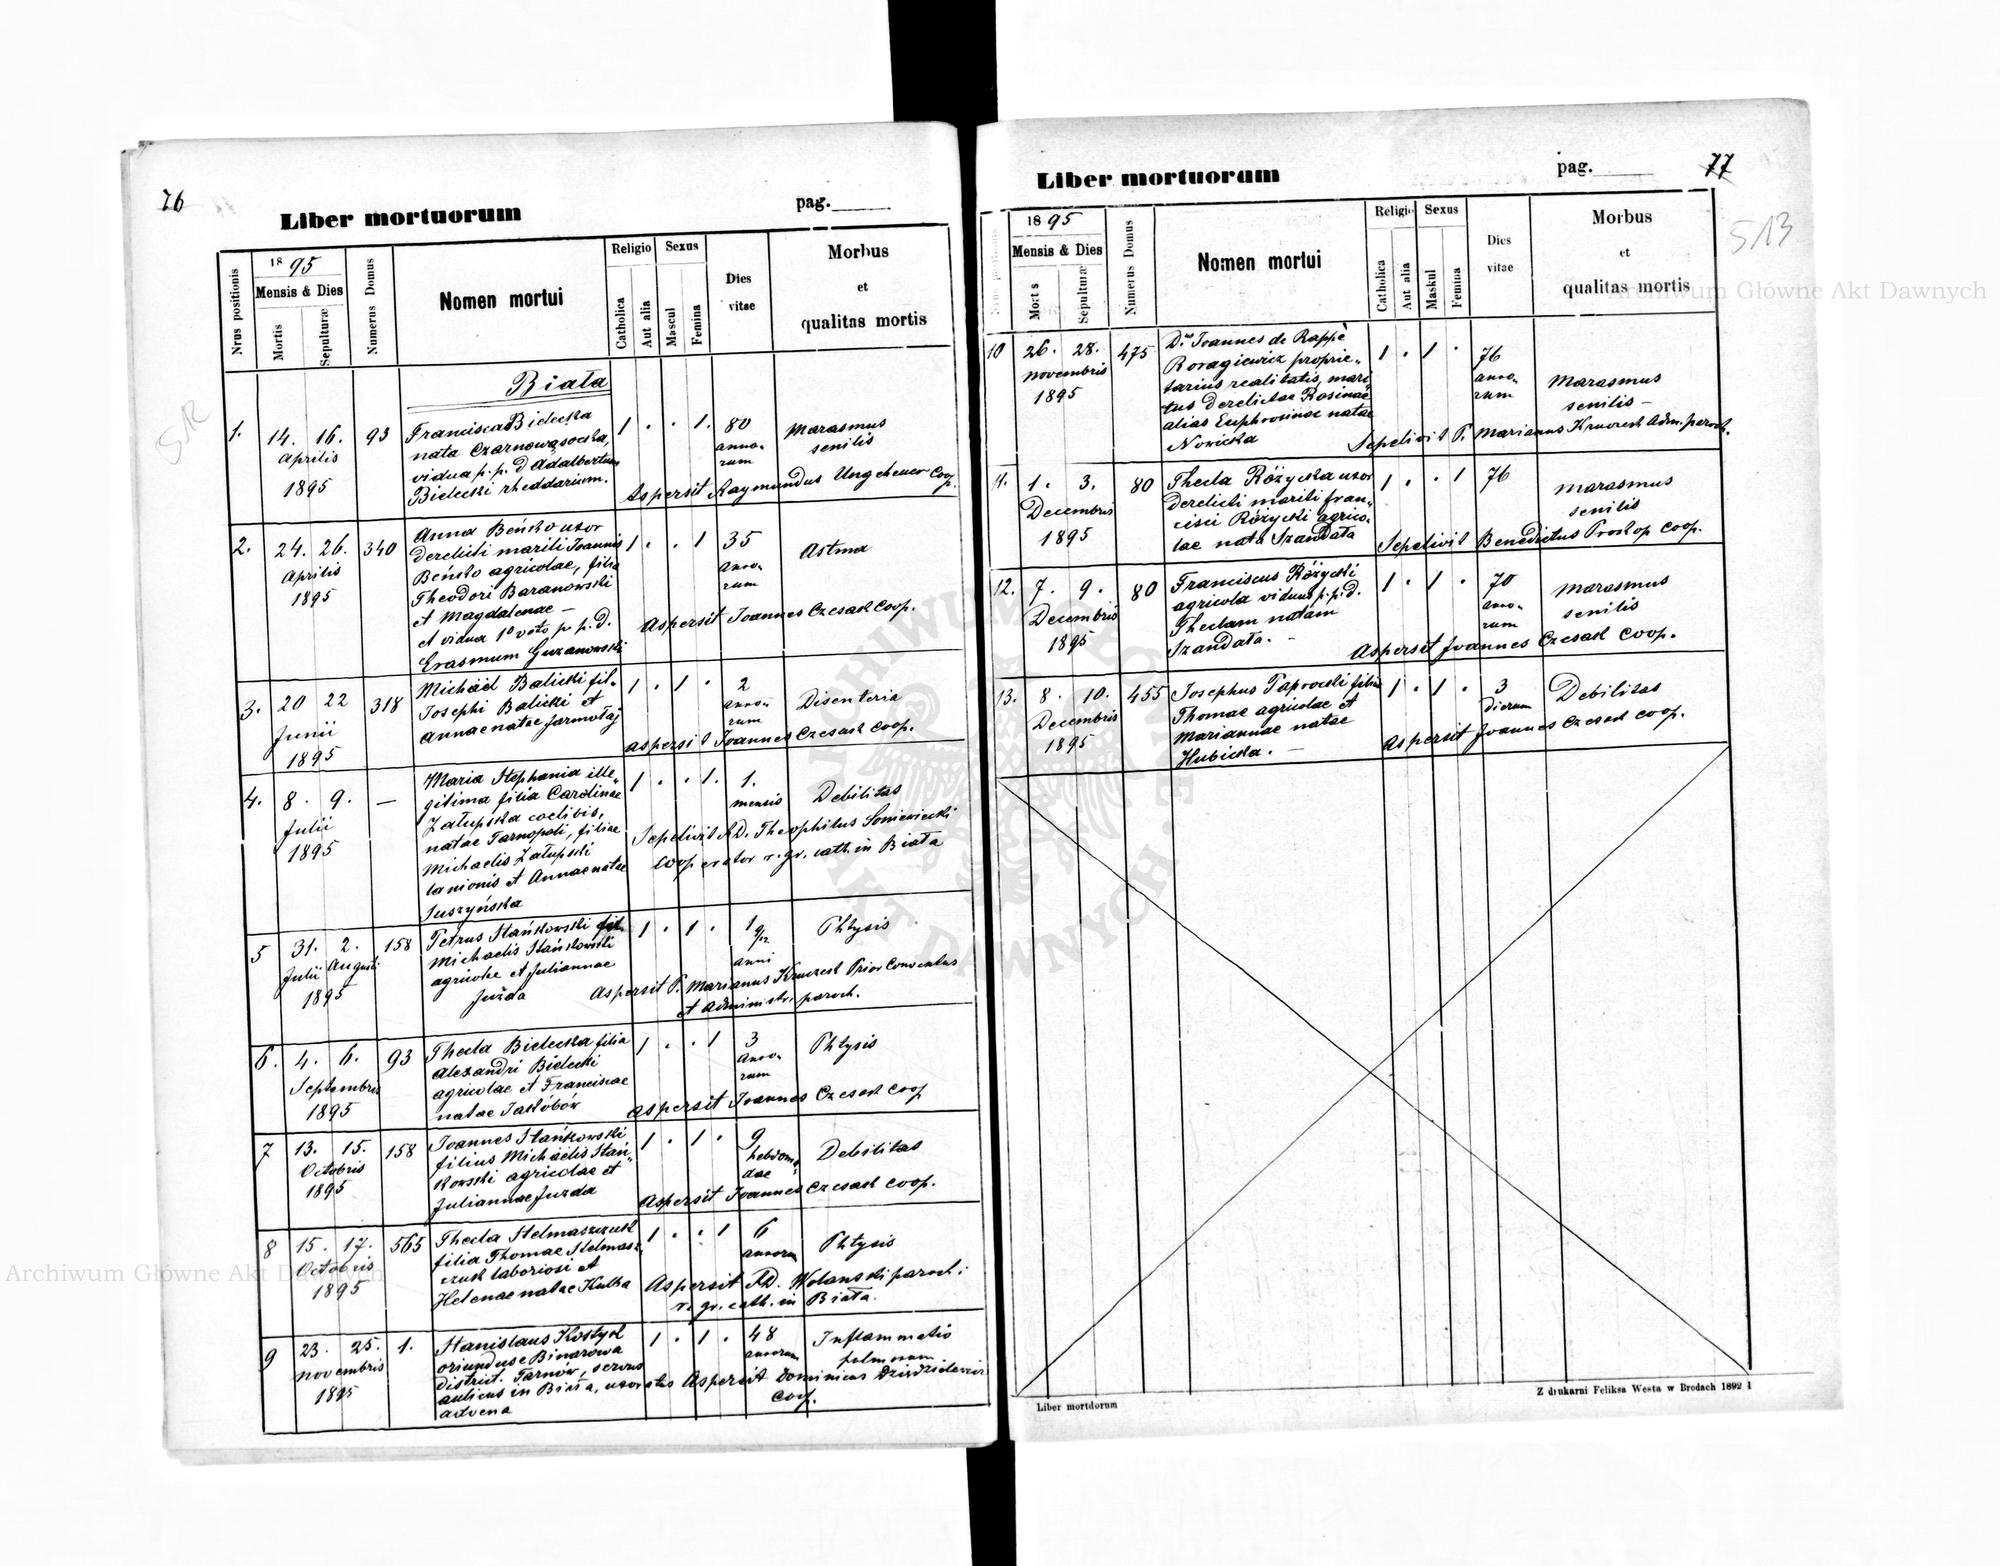 76
Liber mortuorum
pag.
Nrus positionis
1895
Mensis & Dies
Mortis
Sepulturæ
Numerus Domus
Nomen mortui
Religio
Catholica
Aut alia
Sexus
Mascul
Femina
Dies
vitae
Morbus
et
qualitas mortis
Biała
1. 14. 16. 93
Aprilis
1895
Francisca Bielecka
nata Czarnowąsocka,
vidua p. p. d Adalbertum
Bielecki rheddarium.
1 . . 1. 80
anno-
rum
Marasmus
senilis
Aspersit Raymundus Ungeheuer Coop.
2. 24. 26. 340
Aprilis
1895
Anna Beńsko uxor
derelicti mariti Joannis
Beńsko agricolae, filia
Theodori Baranowski
et Magdalenae —
et vidua 1º voto p. p. d.
Erasmum Guzanowski
1 . . 1 35
anno-
rum
Astma
Aspersit Joannes Czesak Coop.
3. 20 22 318
Junii
1895
Michäel Balicki fil.
Josephi Balicki et
Annae natae Jarmołaj
1 . 1 . 2
anno-
rum
Disenteria
Aspersit Joannes Czesak Coop.
4. 8. 9. —
Julii
1895
Maria Stephania ille-
gitima filia Carolinae
Załupska coelibis,
natae Tarnopoli, filiae
Michaelis Załupski
lanionis et Annae natae
Suszyńska
1 . . 1. 1.
mensis
Debilitas
Sepelivit AD. Theophilus
Cooperator r. gr. cath. in Biała
5 31. 2. 158
Julii Augusti
1895
Petrus Stańkowski fil.
Michaelis Stańkowski
agricolae et Juliannae
Juzda
1 . 1 . 1 9/12
anni
Phtysis
Aspersit P. Marianus Kruczek Prior Conventus
et Administr. paroch.
6. 4. 6. 93
Septembris
1895
Thecla Bielecka filia
Alexandri Bielecki
agricolae et Franciscae
natae Jakóbów
1 . . 1 3
anno-
rum
Phtysis
Aspersit Joannes Czesak Coop
7 13. 15. 158
Octobris
1895
Joannes Stańkowski
filius Michäelis Stań-
kowski agricolae et
Juliannae Juzda
1 . 1 . 9
hebdoma-
dae
Debilitas
Aspersit Joannes Czesak Coop.
8 15. 17. 565
Octobris
1895
Thecla Stelmaszczuk
filia Thomae Stelmasz-
czuk laboriosi et
Helenae natae Kulka
1 . . 1 6
annorum
Phtysis
Aspersit AD. Wolanski paroch:
r. gr. cath. in Biała.
9 23. 25. 1.
Novembris
1895
Stanislaus Kostyk
oriundus e Binarowa
district. Tarnów, servus
aulicus in Biała, uxoratus
advena
1 . 1 . 48
annorum
Inflammatio
pulmonum
Aspersit Dominicus
Coop.
77
Liber mortuorum
pag.
513
1895
Mensis & Dies
Mortis
Sepulturæ
Numerus Domus
Nomen mortui
Religio
Catholica
Aut alia
Sexus
Maskul
Femina
Dies
vitae
Morbus
et
qualitas mortis
10 26. 28. 475
Novembris
1895
Dnus Joannes de Rappé
Roragiewicz proprie-
tarius realitatis, mari-
tus derelictae Rosinae
alias Euphrosinae natae
Nowicka
1 . 1 . 76
anno-
rum
Marasmus
senilis —
Sepelivit P. Marianus Kruczek Adm. paroch.
11. 1. 3. 80
Decembris
1895
Thecla Różycka uxor
derelicti mariti Fran-
cisci Różycki agrico-
lae nata Szandała
1 . . 1 76
Marasmus
senilis
Sepelivit Benedictus Proskop coop.
12. 7. 9. 80
Decembris
1895
Franciscus Różycki
agricola viduus p. p. d.
Theclam natam
Szandała. —
1 . 1 . 70
anno-
rum
Marasmus
senilis
Aspersit Joannes Czesak Coop.
13. 8. 10. 455
Decembris
1895
Josephus Paprocki filius
Thomae agricolae et
Mariannae natae
Hubicka. —
1 . 1 . 3
dierum
Debilitas
Aspersit Joannes Czesak Coop.
Liber mortdorum
Z drukarni Feliksa Westa w Brodach 1892
Archiwum Główne Akt Dawnych
Archiwum Główne Akt Dawnych
ARCHIWUM GŁÓWNE AKT DAWNYCH